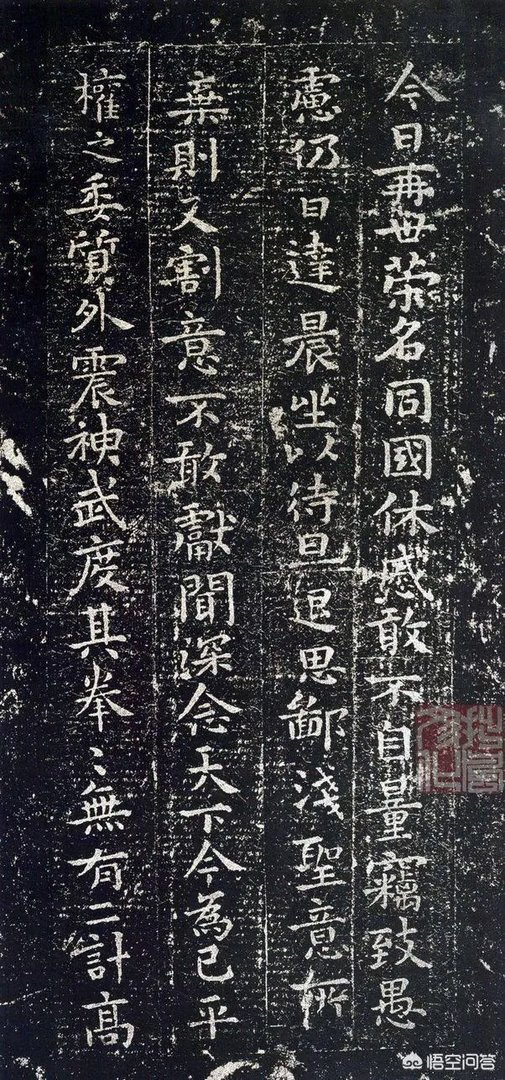 今日再世荣名同國休慼敢不自量竊致愚
慮仍日達晨坐以待旦退思鄙淺聖意所
棄則又割意不敢獻聞深念天下今為已平
權之委質外震神武度其拳〻無有二計高
悟空问答